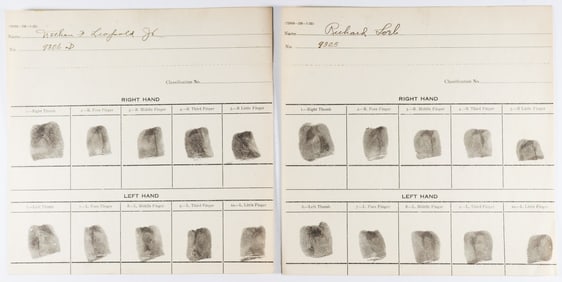 Name Nathan F Leopold Jr
No. 9306-D
Classification No.
RIGHT HAND
1—Right Thumb 2—R. Fore Finger 3—R. Middle Finger 4—R. Third Finger 5—R. Little Finger
LEFT HAND
6—Left Thumb 7—L. Fore Finger 8—L. Middle Finger 9—L. Third Finger 10—L. Little Finger
Name Richard Loeb
No. 9305
Classification No.
RIGHT HAND
1—Right Thumb 2—R. Fore Finger 3—R. Middle Finger 4—R. Third Finger 5—R. Little Finger
LEFT HAND
6—Left Thumb 7—L. Fore Finger 8—L. Middle Finger 9—L. Third Finger 10—L. Little Finger